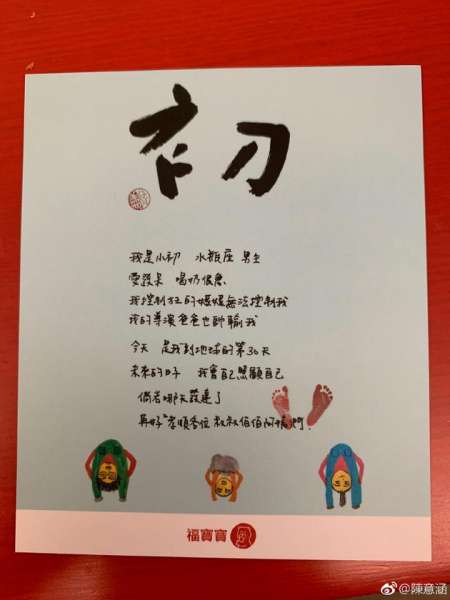 初
我是小初 水瓶座 男生
愛發呆 喝奶很急
我控制狂的媽媽無法控制我
我的導演爸爸也帥輸我
今天 是我到地球的第30天
未來的日子 我會自己照顧自己
倘若哪天發達了
再好好孝順各位叔叔伯伯阿姨們!
福寶寶
@陳意涵